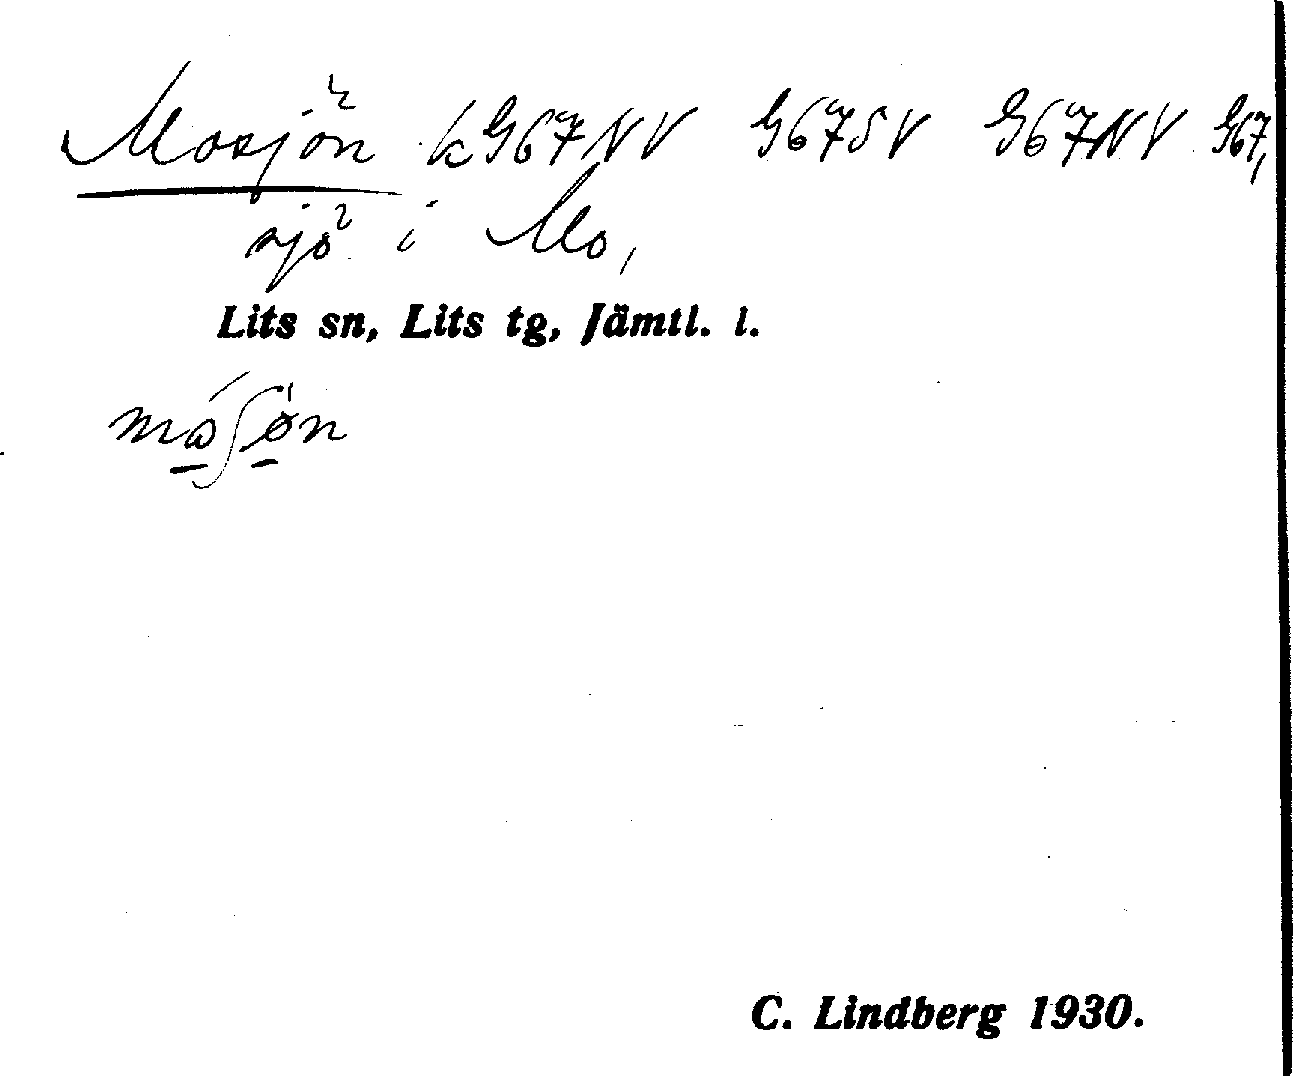 Mosjön k G67NV G67SV G67NV G67,
sjö i Mo,
Lits sn, Lits tg, Jämtl. l.
måʃøn
C. Lindberg 1930.